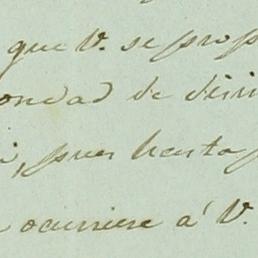 que V. se prop
ondad de diri
, pues hasta
ocurriere á V.